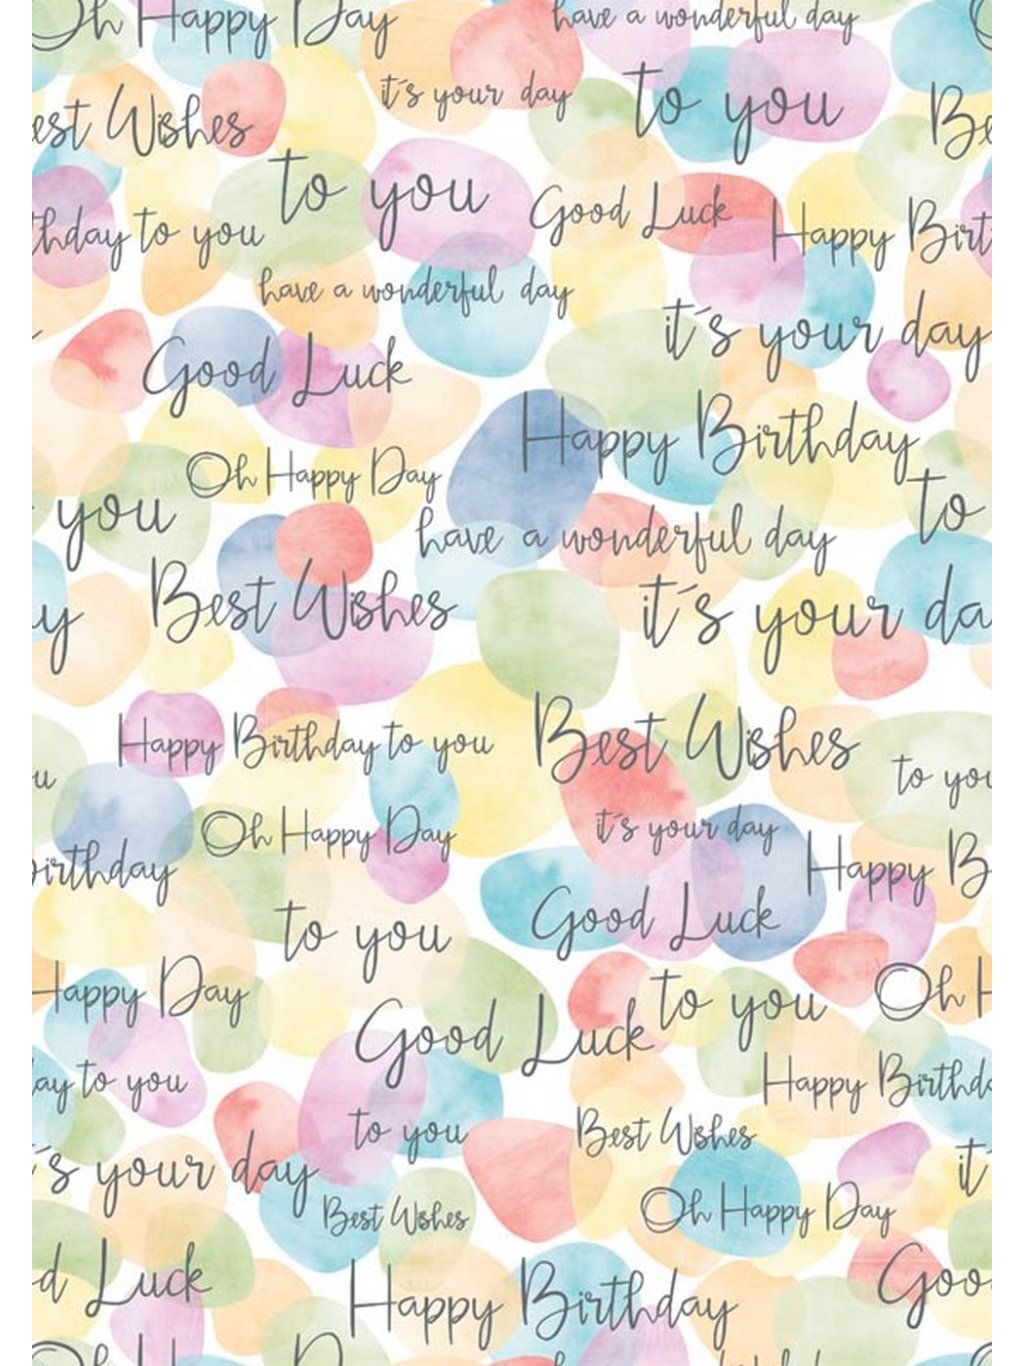 Oh Happy Day
have a wonderful day
it's your day
to you
Best Wishes
Be
to you
Good Luck
Happy Birt
hday to you
have a wonderful day
it's your day
Good Luck
Happy Birthday
Oh Happy Day
to
you
have a wonderful day
Best Wishes
it's your da
y
Happy Birthday to you
Best Wishes
to you
u
Oh Happy Day
it's your day
irthday
Happy B
Good Luck
to you
Happy Day
to you
Oh H
Good Luck
ay to you
Happy Birthda
to you
Best Wishes
's your day
it'
Best Wishes
Oh Happy Day
d Luck
Goo
Happy Birthday